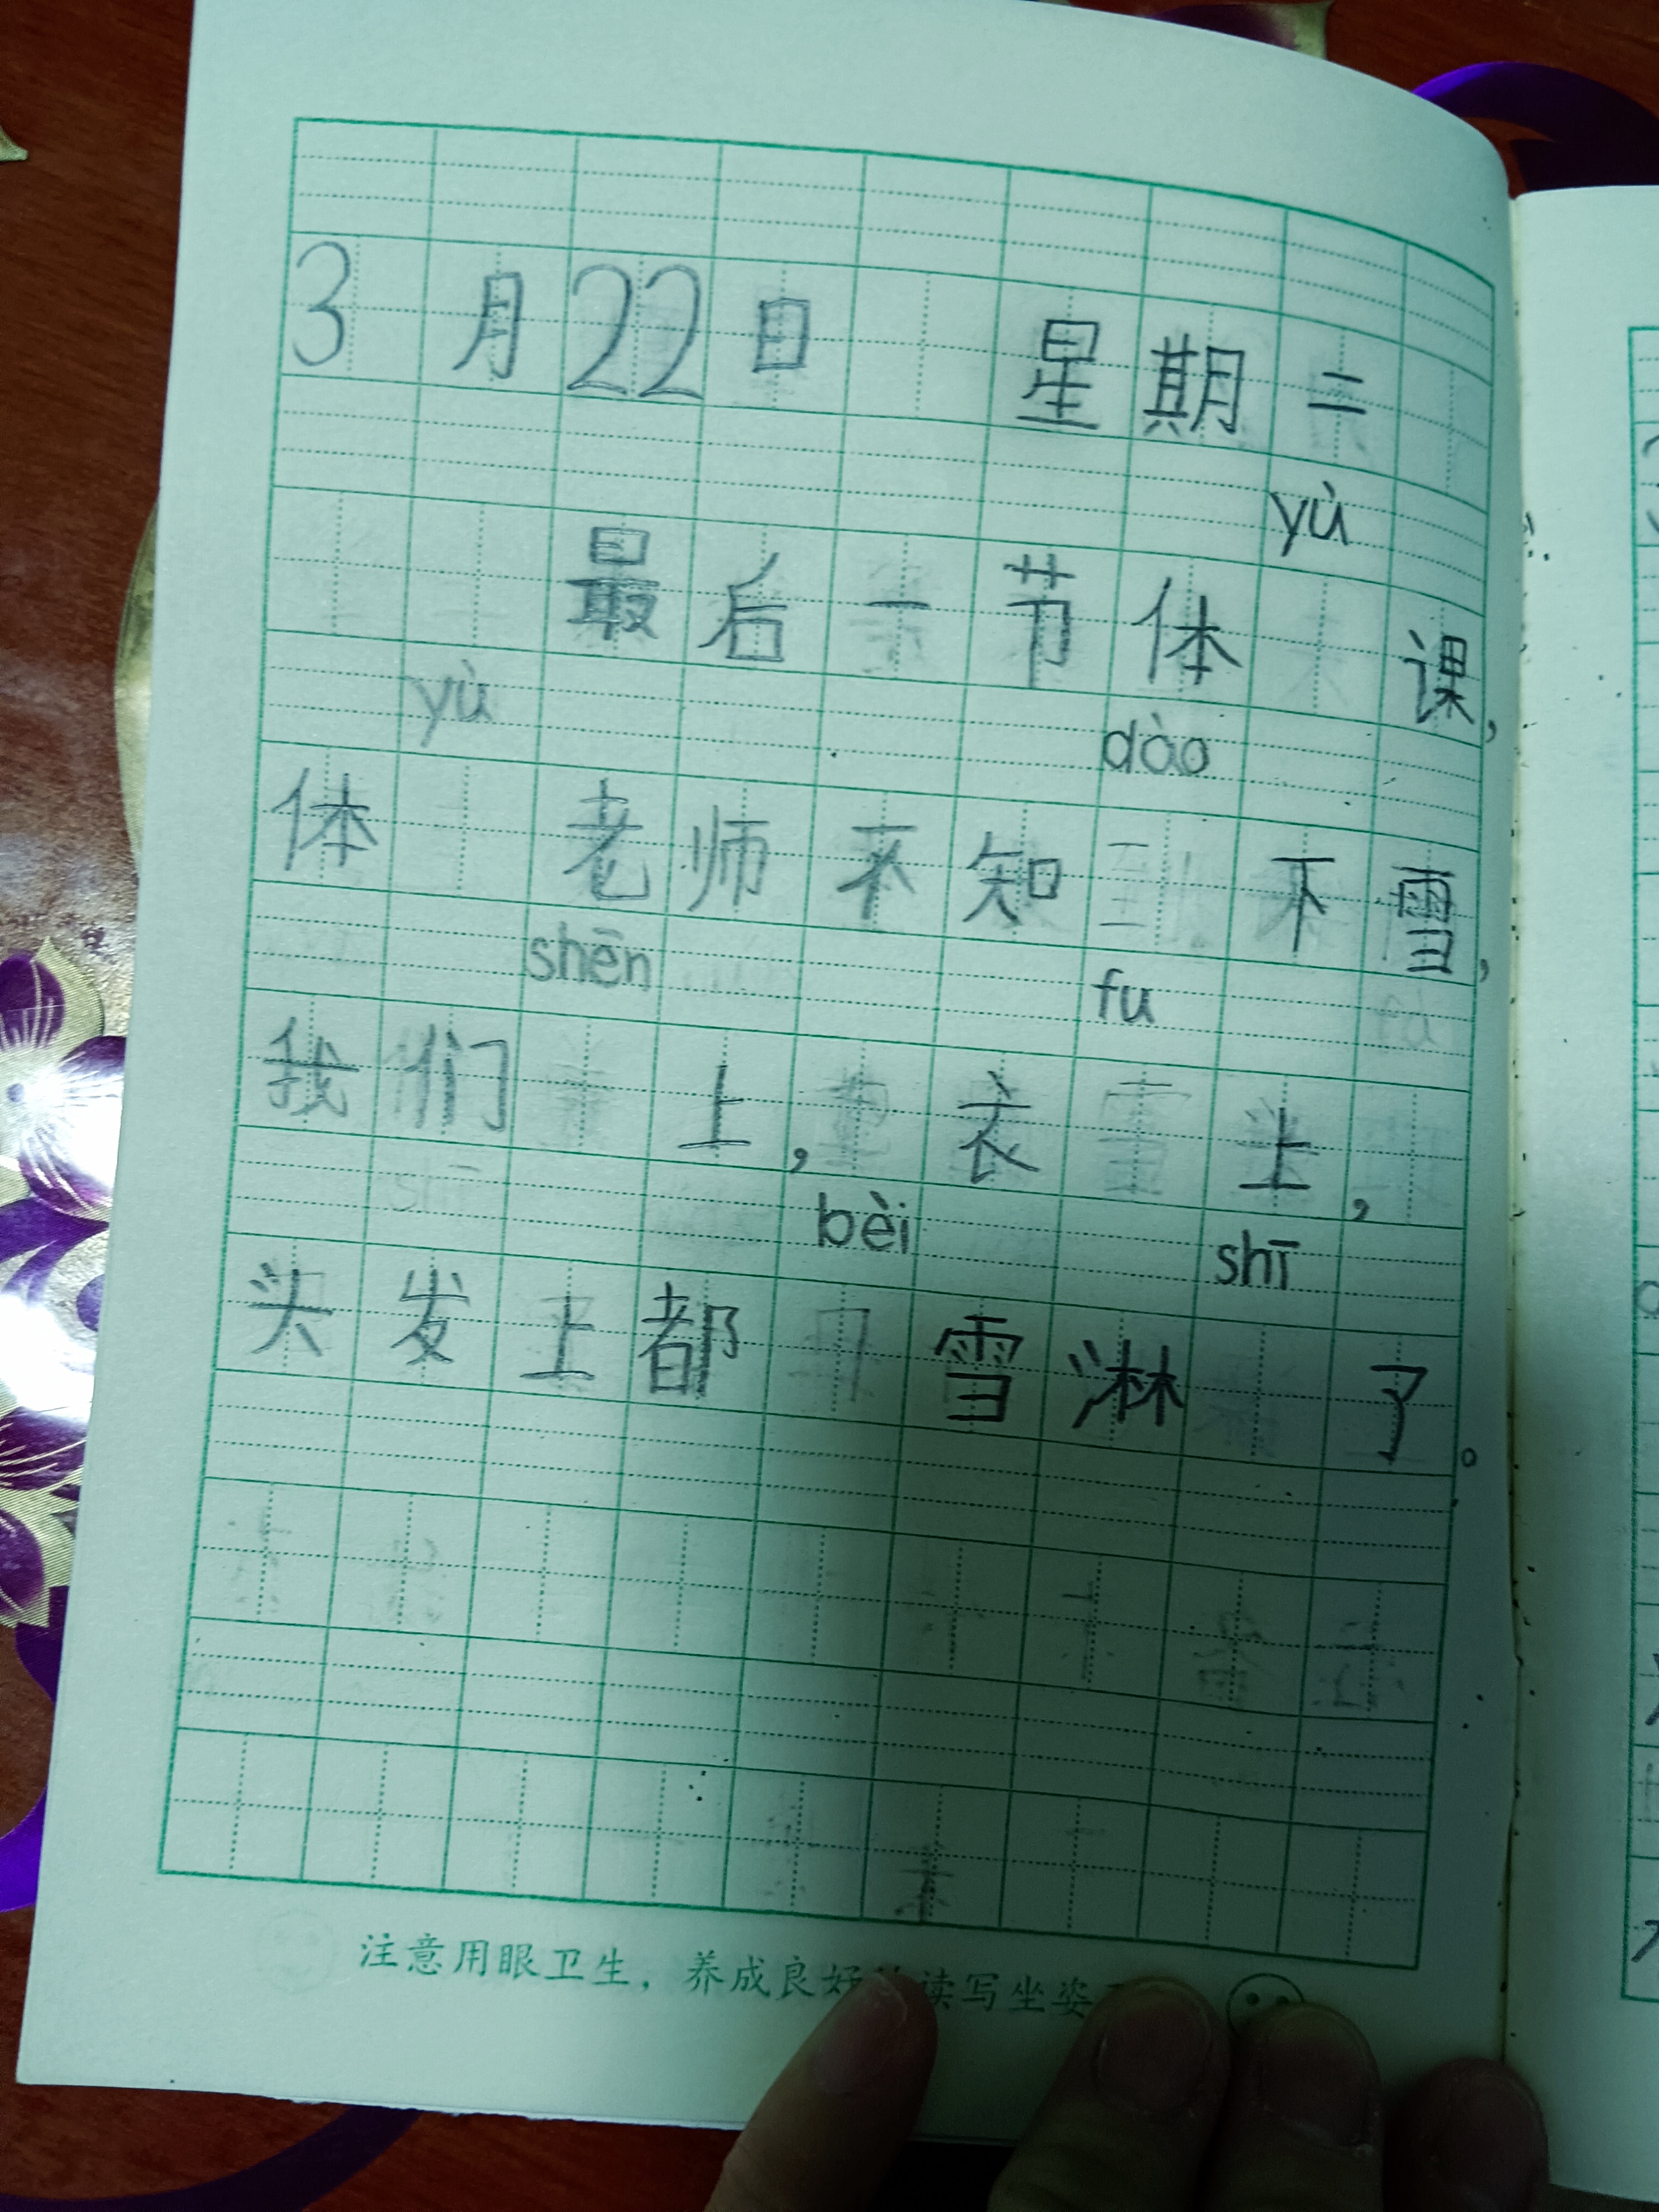 3月22日 星期二
最后一节体yù课,
体yù老师不知dào下雪,
我们shēn上,衣fu上,
头发上都bèi雪淋shī了。
注意用眼卫生，养成良好 读写坐姿